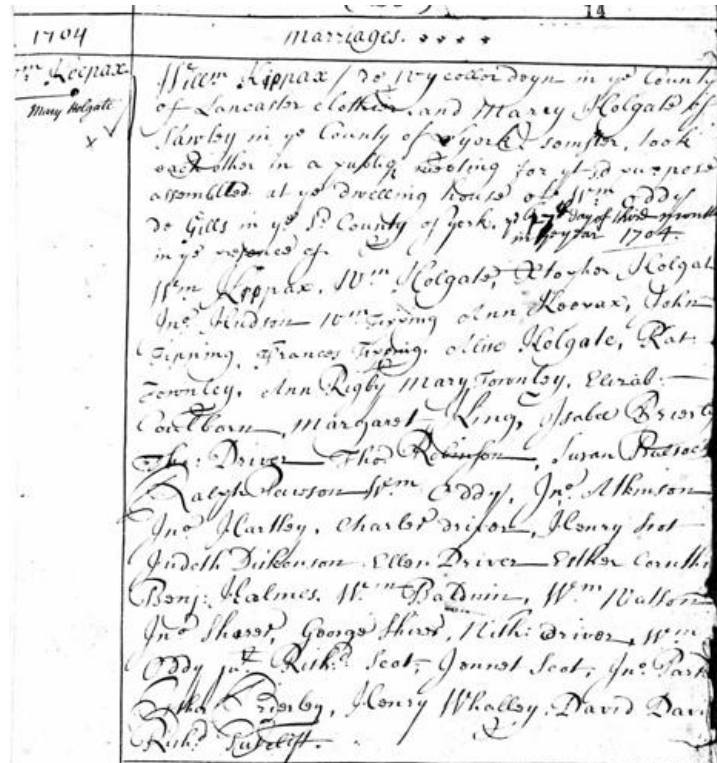 14
1704
Marriages.
Wm Keepax
Mary Holgate
x
Willm Kippax / De Wycollerdeyn in ye County
of Lancaster clothier, and Marey Holgate of
Sawley in ye County of york, somster, took
each other in a publiq meeting for yt sd purpose
assemblled at ye dwelling house of Wm Oddy
De Gills in ye sd County of york. ye 27th day of third month
in ye year 1704.
in ye presence of
Wm Kippax, Wm Holgate, Holgat
Jno Hudson Wm Ann John
Frances Alice Holgate, Kat:
Townley, Ann Rigby Mary Townley, Elizab:
Coulborn, Margaret King, Isabel Brierly
Driver Tho: Robinson, Susan
Ralph Wm Oddy, Jno Atkinson
Jno Hartley, Charles driver, Henry Scot
Judeth Dickonson Ellen Driver Esther
Benj: Holmes, Wm Baldwin, Wm Watson
Jno Shires, George Shires, Nich: driver, Wm
Oddy junr Richd Scot, Jennet Scot, Jno Park
Brierby, Henry Whalley, David
Richd Sutclift.